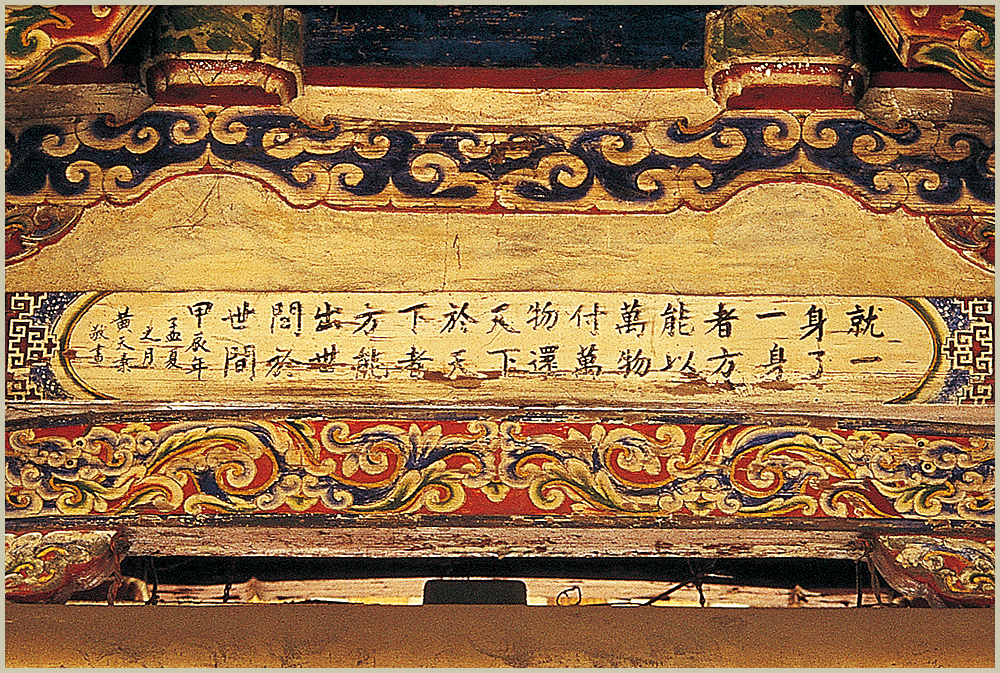 就一
身了
一身
者方
能以
萬物
付萬
物還
天下
於天
下者
方能
出世
間於
世間
甲辰年
孟夏
之月
黃天素
敬書